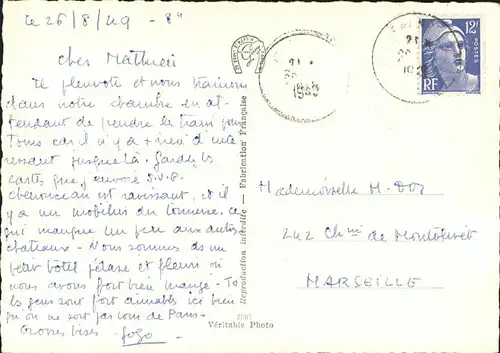 le 26/8/49 - 8h
cher Mathieu
Il pleuvote et nous trainons
dans notre chambre en at-
tendant de prendre le train pour
Tours car il n'y a + rien d'inté
ressant jusque là. Gardez les
cartes que j'envoie S.V.P.
chenonceau est ravissant, et il
y a un mobilier du tonnerre, ce
qui manque un peu aux autres
chateaux - Nous sommes ds un
petit hôtel et fleuri où
nous avons fort bien mangé -
les gens sont fort aimables ici bien
qu'on ne soit pas loin de Paris -
Grosses bises - Gogo
Reproduction interdite — Fabrication Française
2501
Véritable Photo
12F
POSTES
RF
Mademoiselle M. Dor
242 Ch de Montolivet
MARSEILLE